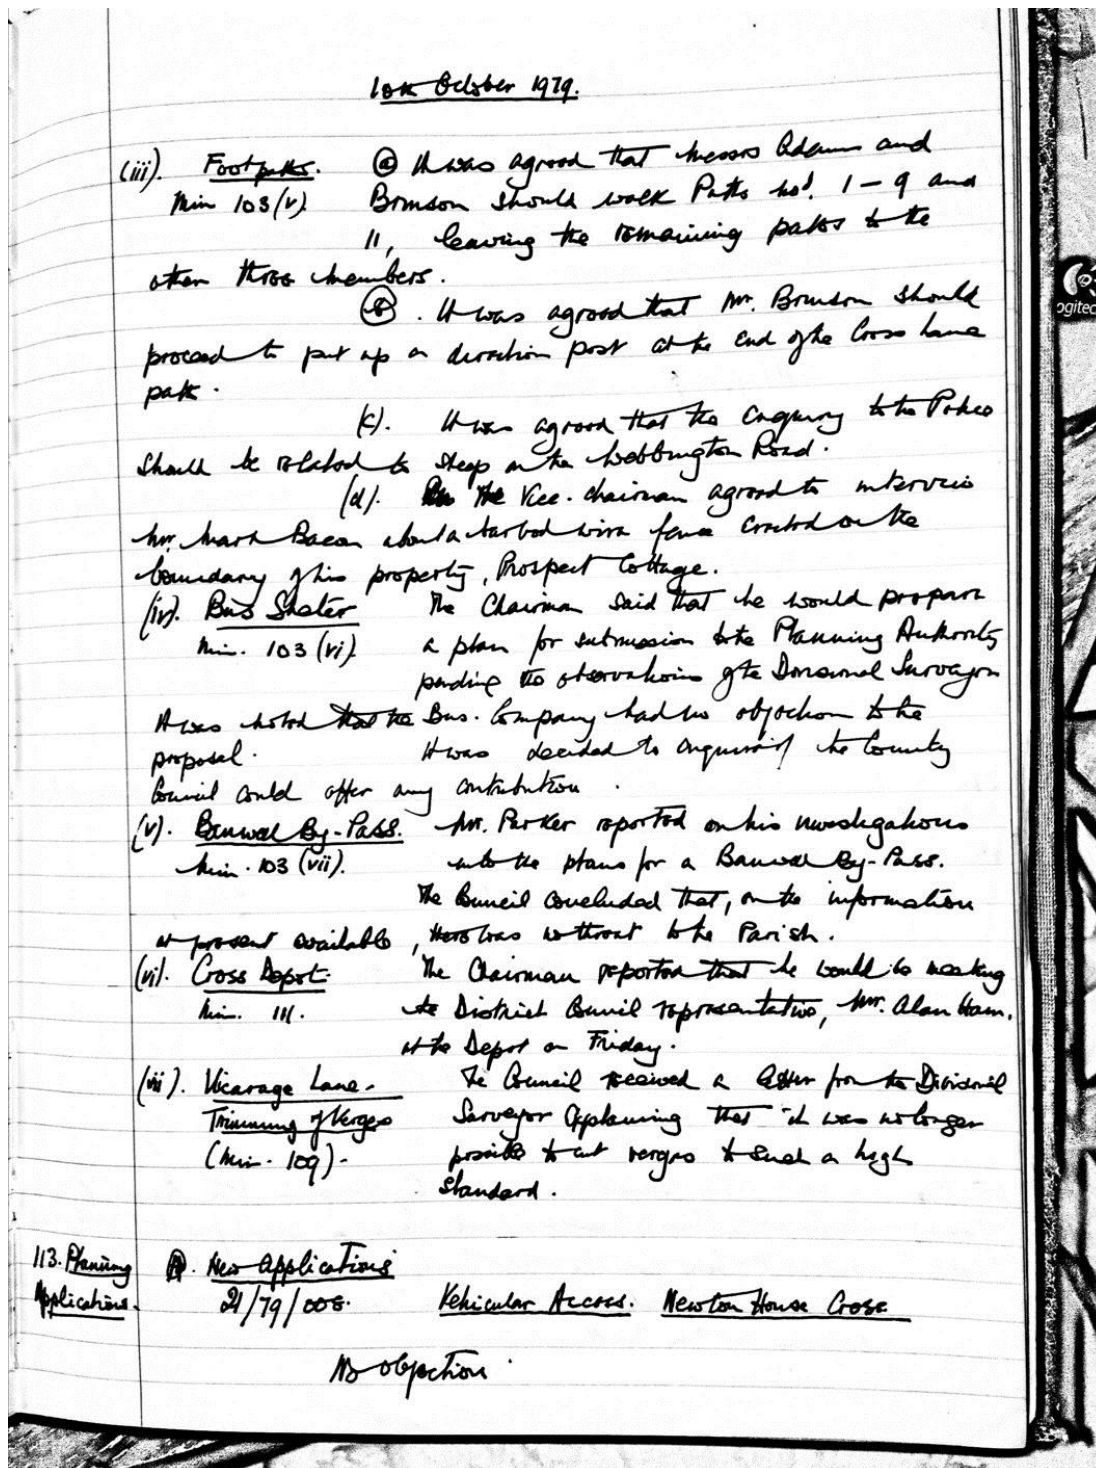 10th October 1979.
(iii). Footpaths. (a) It was agreed that Messrs Adams and
Min 103(v). Brunson should walk Paths nos. 1 – 9 and
11, leaving the remaining paths to the
other three members.
(b). It was agreed that Mr. Brunson should
proceed to put up a direction post at the end of the Cross Lane
path.
(c). It was agreed that the enquiry to the Police
should be related to steps on the Webbington Road.
(d). The Vice-Chairman agreed to interview
Mr. Mark Bacon about a barbed wire fence erected on the
boundary of his property, Prospect Cottage.
(iv). Bus Shelter The Chairman said that he would prepare
Min. 103 (vi). a plan for submission to the Planning Authority
pending the observations of the Divisional Surveyor
It was noted that the Bus. Company had no objection to the
proposal. It was decided to enquire if the County
Council could offer any contribution.
(v). Banwell By-Pass. Mr. Parker reported on his investigations
Min. 103 (vii). into the plans for a Banwell By-Pass.
The Council concluded that, on the information
at present available, there was no threat to the Parish.
(vi). Cross Depot. The Chairman reported that he would be meeting
Min. 111. the District Council representative, Mr. Alan Ham.
at the Depot on Friday.
(vii). Vicarage Lane - The Council received a letter from the Divisional
Trimming of Verges Surveyor explaining that it was no longer
(Min. 109). possible to cut verges to such a high
standard.
113. Planning A. New Applications
Applications. 21/79/008. Vehicular Access. Newton House Cross
No objection.
ogitec